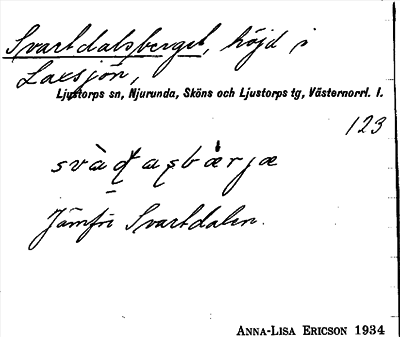 Svartdalsberget, höjd i
Laxsjön,
Ljustorps sn, Njurunda, Sköns och Ljustorps tg, Västernorrl. l.
123
Jämför Svartdalen.
ANNA-LISA ERICSON 1934